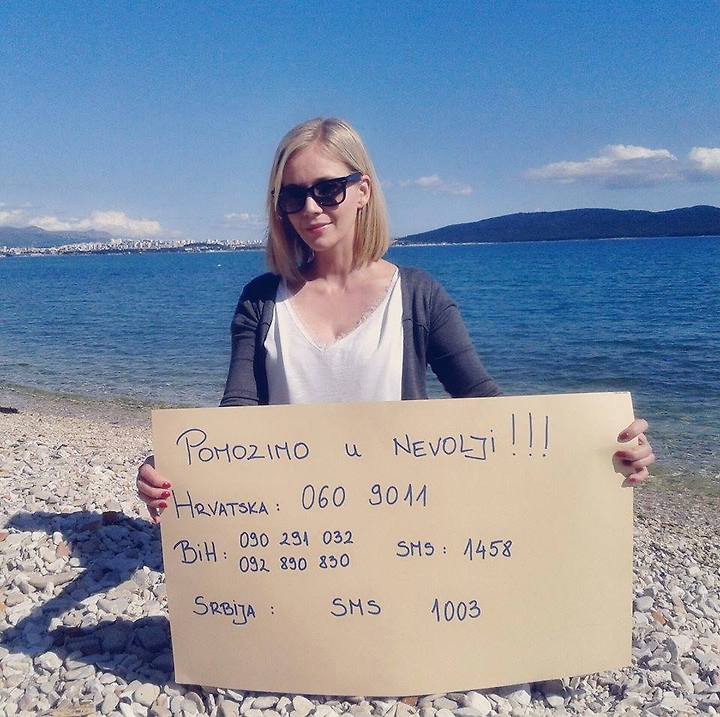 POMOZIMO U NEVOLJI!!!
HRVATSKA: 060 9011
BiH: 090 291 032 SMS: 1458
092 890 830
SRBIJA: SMS 1003